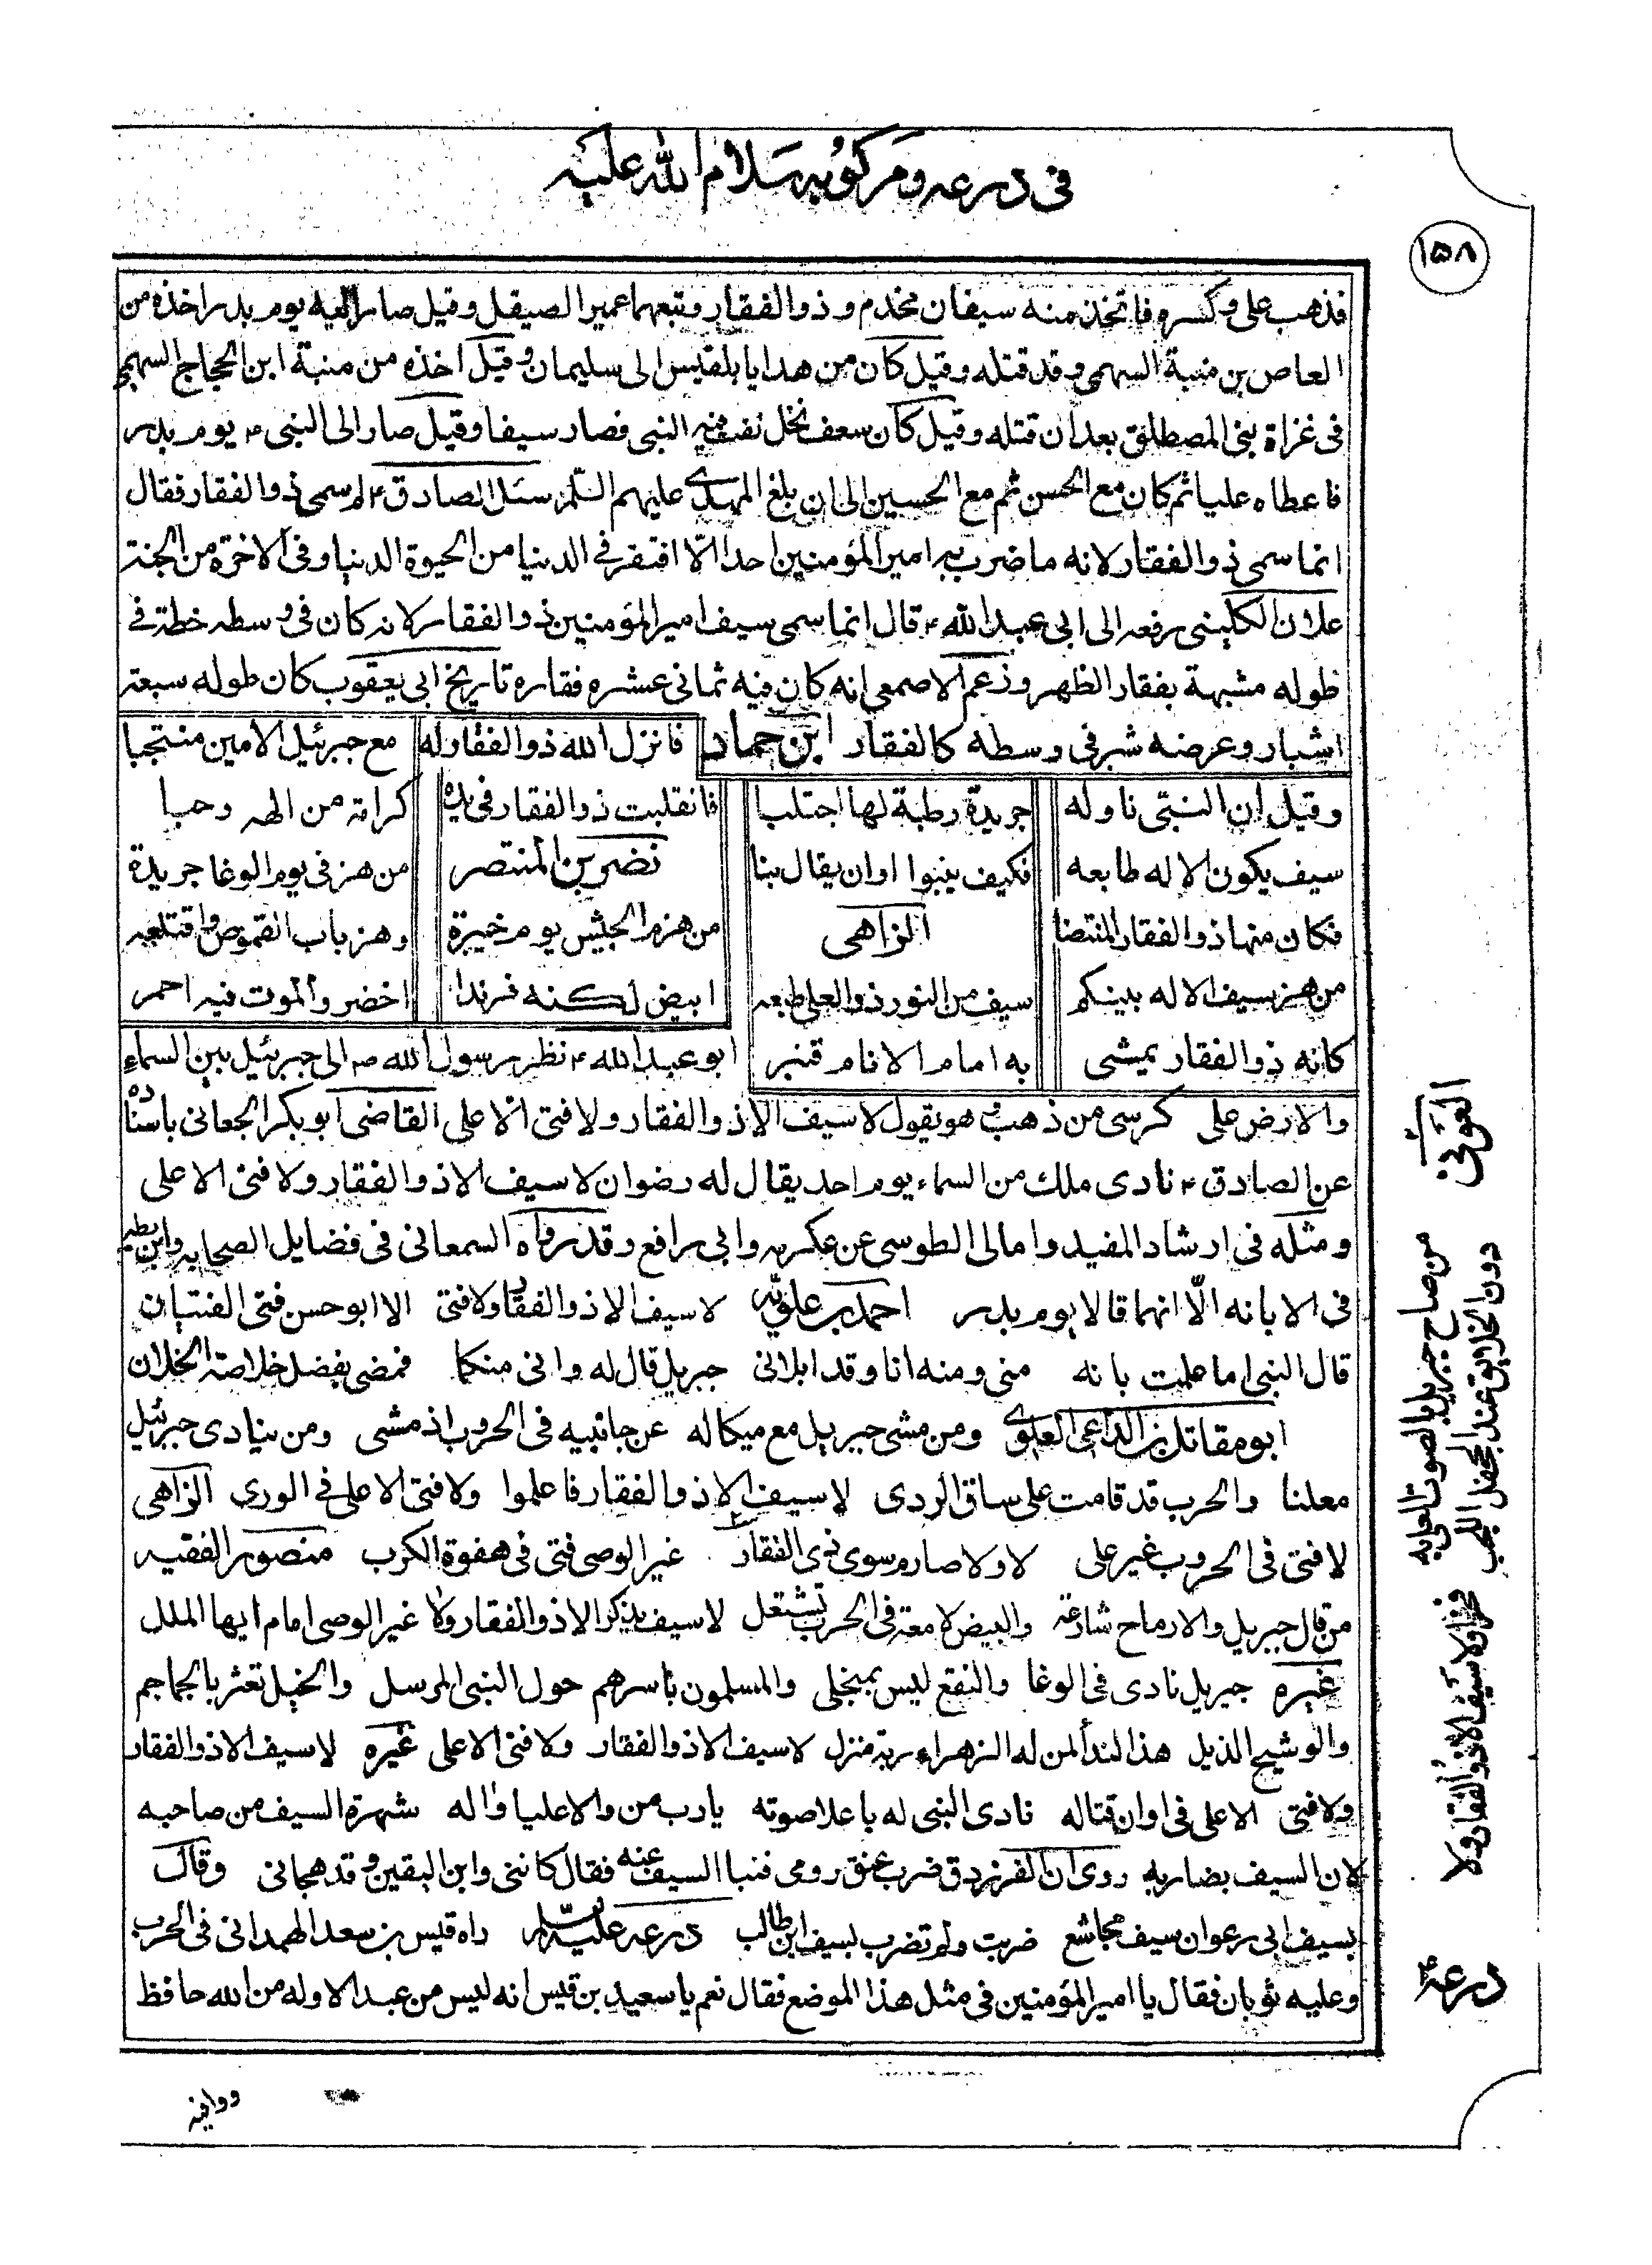 فى درعه ومركوبه سلام الله عليه
١٥٨
فذهب على وكسره فاتخذ منه سيفان مخدم وذو الفقار وتبعهما عمير الصيقل وقيل صار اليه يوم بدر اخذه من
العاص بن منبة السهمى وقد قتله وقيل كان من هدايا بلقيس الى سليمان وقيل اخذه من منبة ابن الحجاج السهمى
فى غزاة بنى المصطلق بعد ان قتله وقيل كان سعف نخل نفث فيه النبى فصار سيفا وقيل صار الى النبى ٢ يوم بدر
فاعطاه عليا ثم كان مع الحسن ثم مع الحسين الى ان بلغ المهدى عليهم السلم سئل الصادق ٢ لم سمى ذو الفقار فقال
انما سمى ذو الفقار لانه ما ضرب به امير المؤمنين احدا الّا افتقر فى الدنيا من الحيوة الدنيا وفى الاخرة من الجنة
علان الكلينى رفعه الى ابى عبد الله ٢ قال انما سمى سيف امير المؤمنين ذو الفقار لانه كان فى وسطه خطة فى
طوله مشبهة بفقار الظهر وزعم الاصمعى انه كان فيه ثمانى عشره فقاره تاريخ ابى يعقوب كان طوله سبعة
اشبار وعرضه شبر فى وسطه كالفقار ابن حماد فانزل الله ذو الفقار له مع جبرئيل الامين منتجبا
وقيل ان النبى ناوله جريدة رطبة لها اجتلب فانقلبت ذو الفقار فى يده كرامة من الهه وحبا
سيف يكون الاله طابعه فكيف ينبوا اوان يقال نبا نصر بن المنتصر من هز فى يوم الوغا جريدة
فكان منها ذو الفقار المنتضا الزاهى من هزم الجيش يوم خيبرة وهز باب القموص واقتلعه
من هز سيف الاله بينكم سيف من النور ذو العلى طبعه ابيض لكنه فرندا اخضر والموت فيه احمر
كانه ذو الفقار يمشى به امام الانام قنبر ابو عبد الله ٢ نظر رسول الله ص الى جبرئيل بين السماء
والارض على كرسى من ذهب وهو يقول لا سيف الا ذو الفقار ولا فتى الا على القاضى ابو بكر الجعانى باسناده
عن الصادق ٢ نادى ملك من السماء يوم احد يقال له رضوان لا سيف الا ذو الفقار ولا فتى الا على
ومثله فى ارشاد المفيد وامالى الطوسى عن عكرمه وابى رافع وقد رواه السمعانى فى فضايل الصحابه وابن بطه
فى الابانه الّا انهما قالا يوم بدر احمد بن علويه لا سيف الا ذو الفقار ولا فتى الا ابو حسن فتى الفتيان
قال النبى اما علمت بانه منى ومنه انا وقد ابلانى جبريل قال له وانى منكما فمضى بفضل خلاصة الخلان
ابو مقاتل بن الداعى العلوى ومن مشى جبريل مع ميكاله عن جانبيه فى الحروب اذ مشى ومن ينادى جبرئيل
معلنا والحرب قد قامت على ساق الردى لا سيف الا ذو الفقار فاعلموا ولا فتى الا على فى الورى الزاهى
لا فتى فى الحروب غير على لا ولا صارم سوى ذى الفقار غير الوصى فتى فى هفوة الكرب منصور الفقيه
من قال جبريل والارماح شارعة والبيض لامعة فى الحرب تشتعل لا سيف يذكر الا ذو الفقار ولا غير الوصى امام ايها الملل
غيره جبريل نادى فى الوغا والنقع ليس بمنجلى والمسلمون باسرهم حول النبى المرسل والخيل تعثر بالجماجم
والوشيج الذبل هذا الندا لمن له الزهراء ربة منزل لا سيف الا ذو الفقار ولا فتى الا على غيره لا سيف الا ذو الفقار
ولا فتى الا على فى اوان قتاله نادى النبى له باعلا صوته يا رب من والا عليا واله شهرة السيف من صاحبه
لان السيف بضاربه روى ان الفرزدق ضرب عنق رومى فنبا السيف عنه فقال كاننى وابن القين وقد هجانى وقال
بسيف ابى رعوان سيف مجاشع ضربت ولم تضرب بسيف ابن ظالب درعه عليه السلام راه قيس بن سعد الهمدانى فى الحرب
وعليه ثوبان فقال يا امير المؤمنين فى مثل هذا الموضع فقال نعم يا سعيد بن قيس انه ليس من عبد الا وله من الله حافظ
العونى
من صاح جبريل بالصوت العلى به
دون الخلايق عند الجحفل اللجب
فخرا ولا سيف الا ذو الفقار ولا
درعه ٢
وواقية